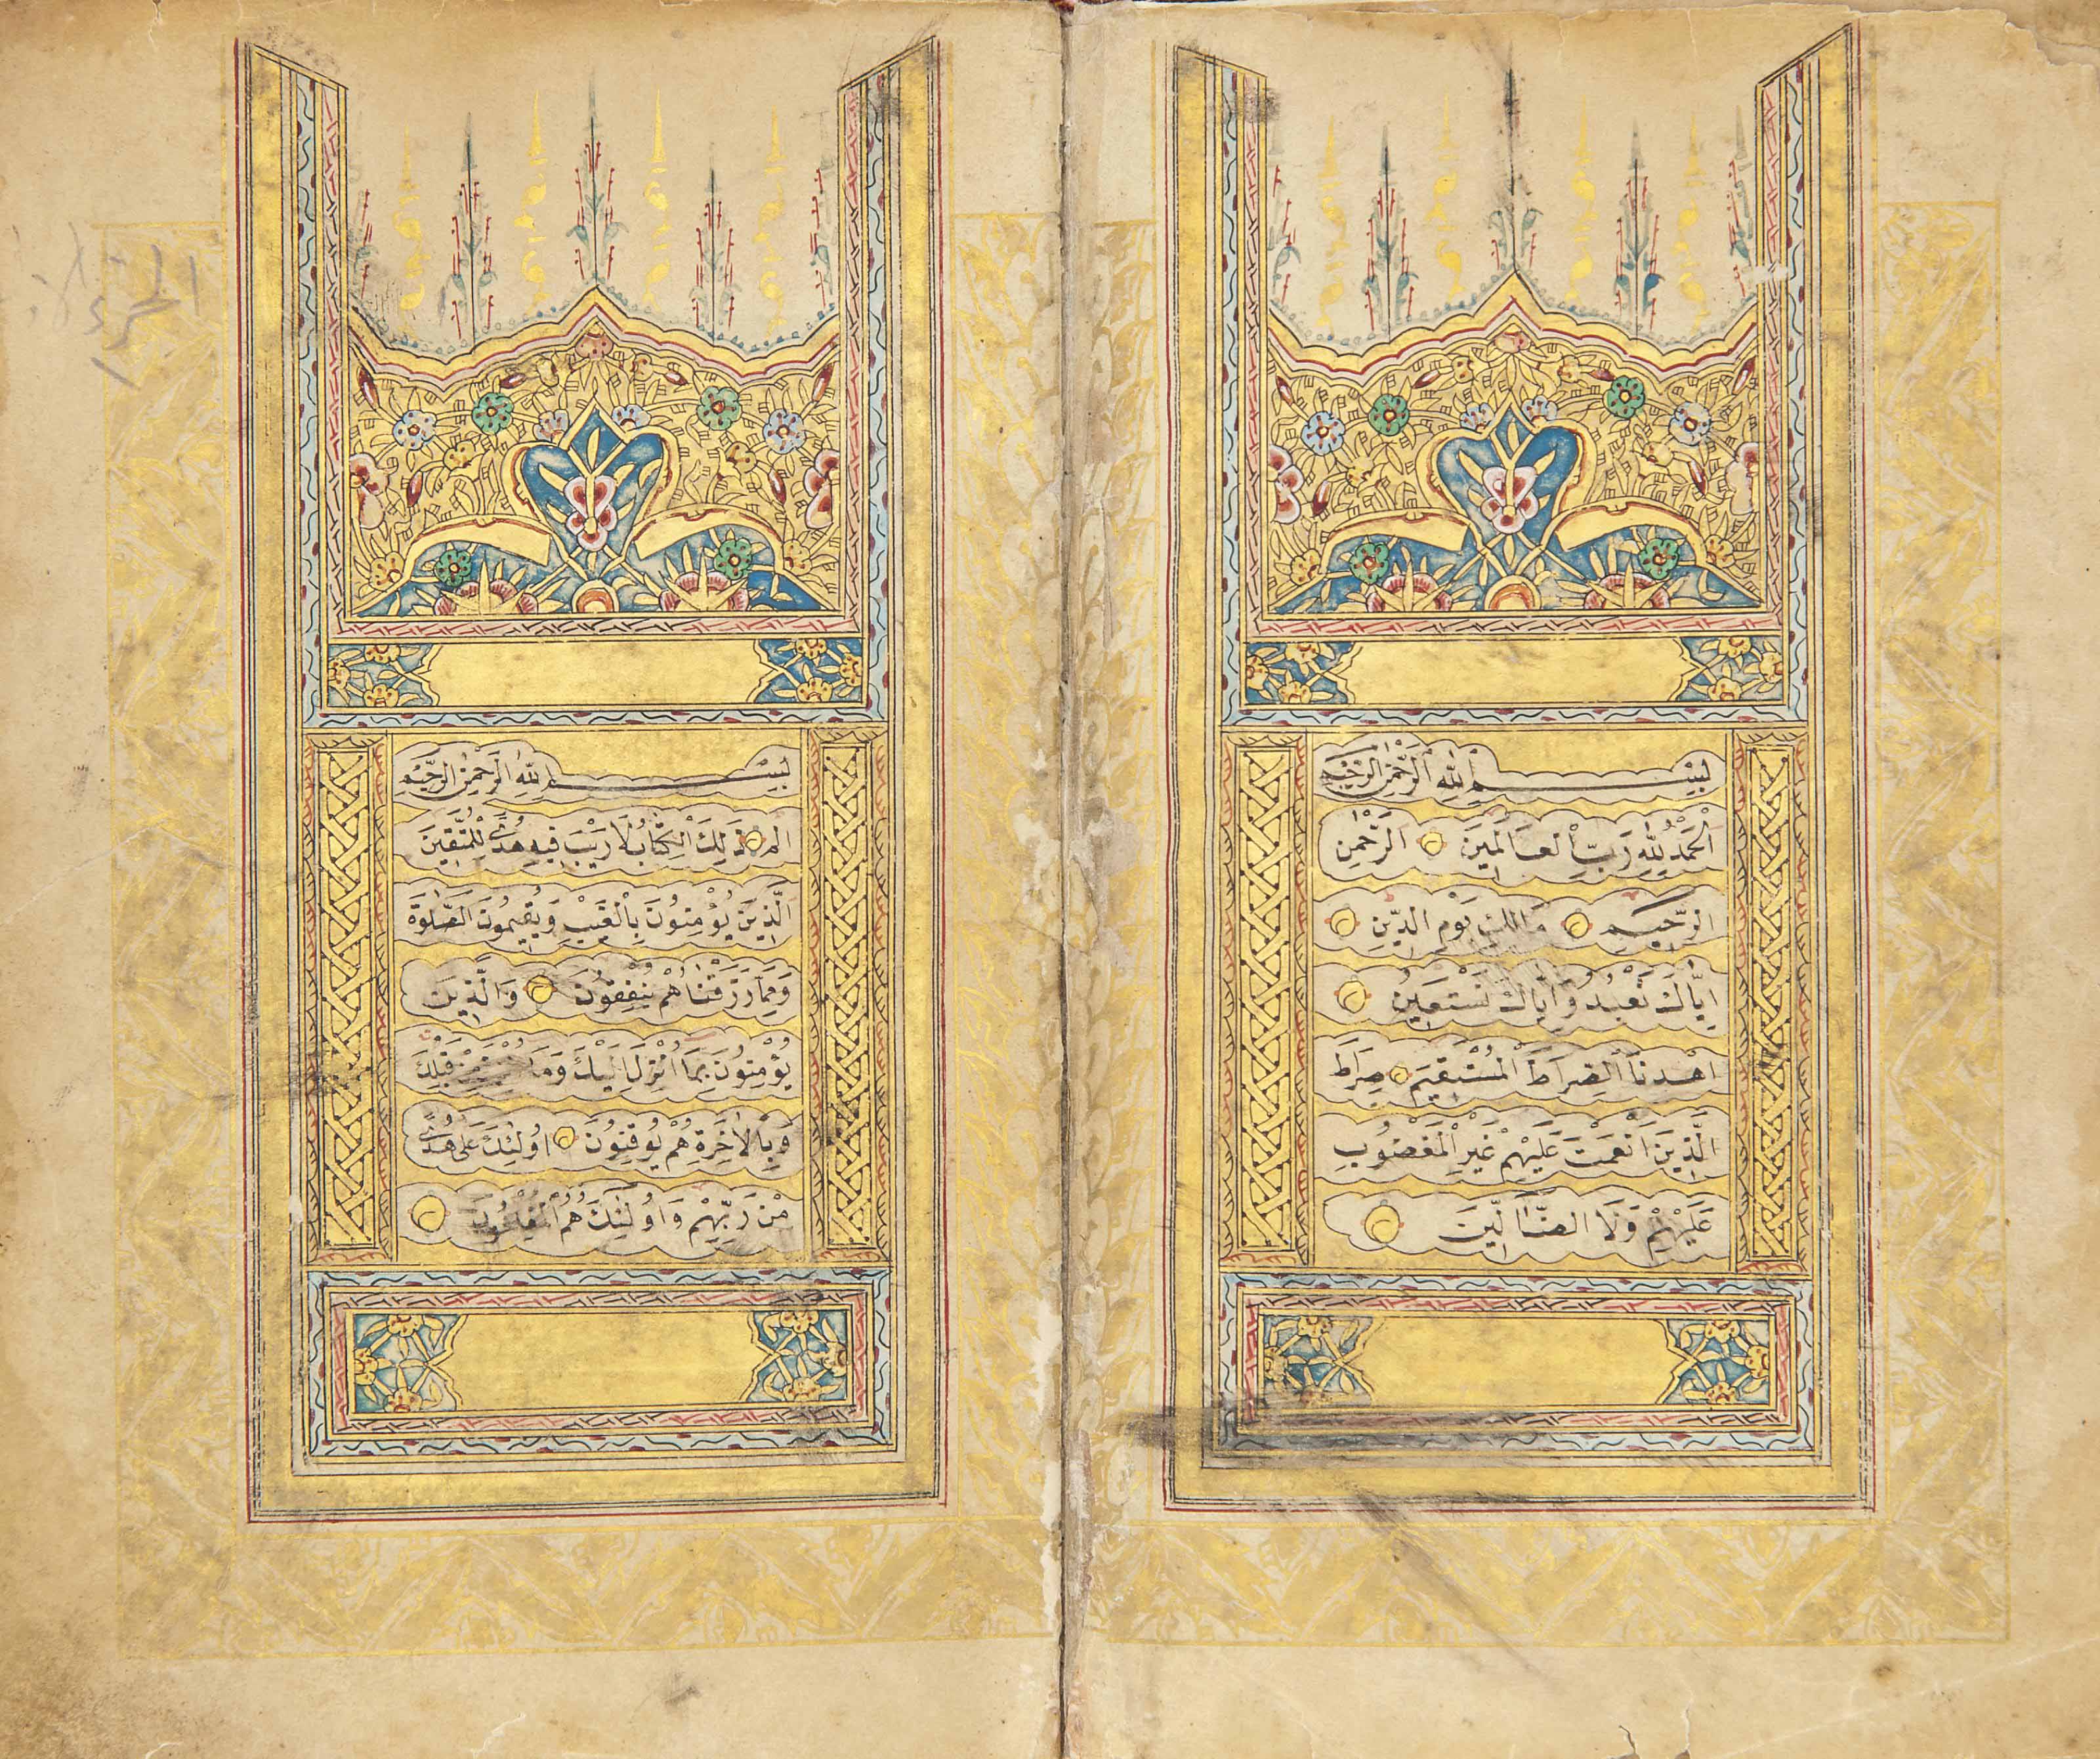 بِسْمِ اللهِ الرَّحْمٰنِ الرَّحِيْمِ
اَلْحَمْدُ لِلّٰهِ رَبِّ الْعَالَمِيَنَ الَرَّحْمٰنِ
الرَّحيِـمِ مَالِكِ يَوْمِ الدّيِنِ
اِيَّاكَ نَعْبُدُ وَاِيَّاكَ نَسْتَعيِنُ
اِهْدِنَا الصِّرَاطَ الْمُسْتَقيِمَ صِرَاطَ
الَّذيِنَ اَنْعَمْتَ عَلَيْهِمْ غَيْرِ الْمَغْضُوبِ
عَلَيْهِمْ وَلَا الضَّالّيِنَ
بِسْمِ اللهِ الرَّحْمٰنِ الرَّحِيْمِ
الم ذٰلِكَ الْكِتَابُ لَا رَيْبَ فيِهِ هُدًى لِلْمُتَّقيِنَ
اَلَّذيِنَ يُؤْمِنُونَ بِالْغَيْبِ وَيُقيِمُونَ الصَّلٰوةَ
وَمِمَّا رَزَقْنَاهُمْ يُنْفِقُونَ وَالَّذيِنَ
يُؤْمِنُونَ بِمَا اُنْزِلَ اِلَيْكَ وَمَا مِنْ قَبْلِكَ
وَبِالْاٰخِرَةِ هُمْ يُوقِنُونَ اُولٰئِكَ عَلٰى هُدًى
مِنْ رَبِّهِمْ وَاُولٰئِكَ هُمُ الْمُفْلِحُونَ